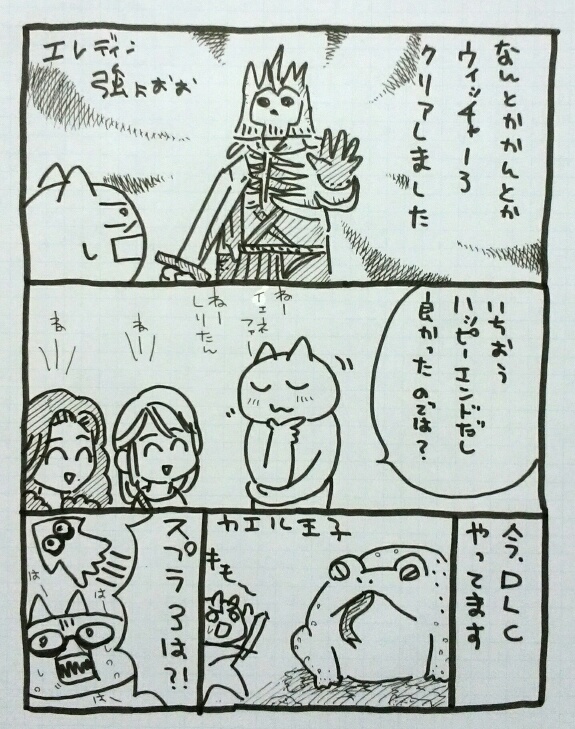 なんとかかんとか
ウィッチャー3
クリアしました
エレディン
強よおお
いちおう
ハッピーエンドだし
良かったのでは?
ねー
イェネファー
ねー
しりたん
ね
ね
今、DLC
やってます
カエル王子
キモ〜
スプラ3は?!
はー
はー
はー